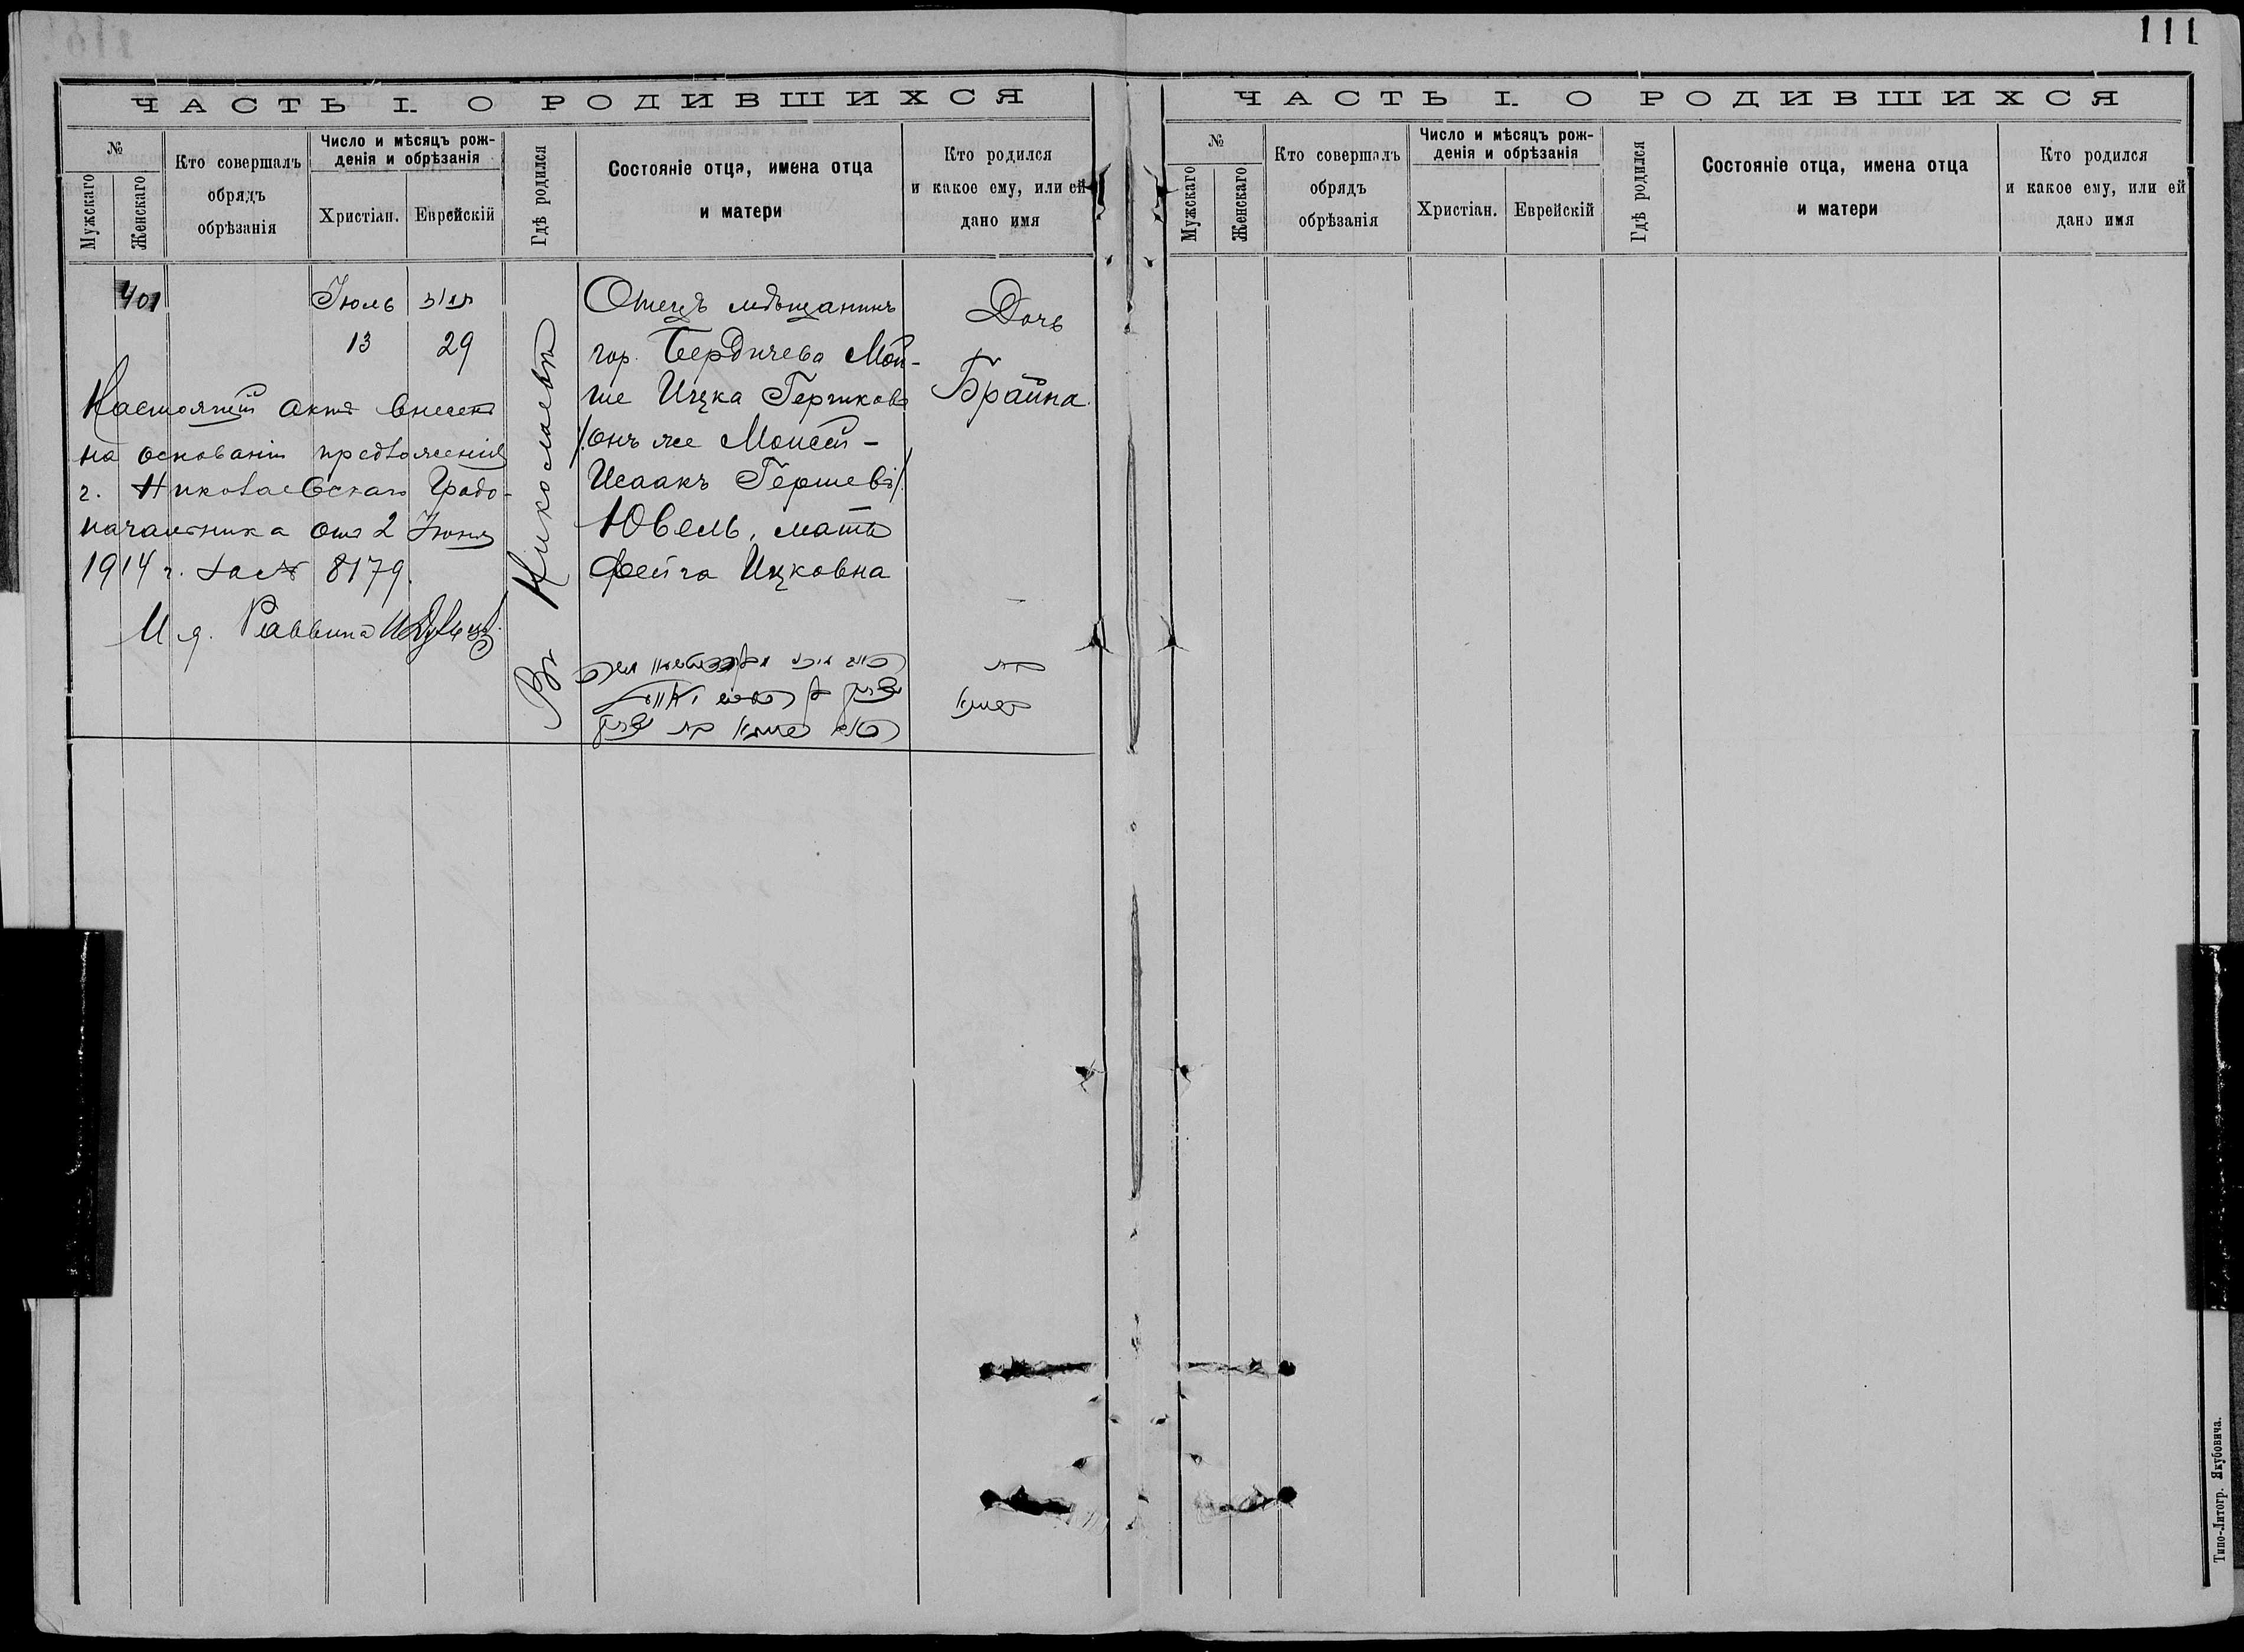 111
ЧАСТЬ I. О РОДИВШИХСЯ
№
Мужскаго
Женскаго
Кто совершалъ
обрядъ
обрѣзанія
Число и мѣсяцъ рож-
денія и обрѣзанія
Христіан.
Еврейскій
Гдѣ родился
Состояніе отца, имена отца
и матери
Кто родился
и какое ему, или ей
дано имя
401
Іюль
13
29
Настоящій актъ внесенъ
на основаніи предложенія
г. Николаевскаго Градо-
начальника отъ 2 Іюня
1914 г. за № 8179.
И. д. Раввина
Въ Николаевѣ
Отецъ мѣщанинъ
гор. Бердичева Мой-
ше Ицка Гершковъ
/онъ же Моисей-
Исаакъ Гершевъ/
Ювель, мать
Фейга Ицковна
Дочь
Брайна
ЧАСТЬ I. О РОДИВШИХСЯ
№
Мужскаго
Женскаго
Кто совершалъ
обрядъ
обрѣзанія
Число и мѣсяцъ рож-
денія и обрѣзанія
Христіан.
Еврейскій
Гдѣ родился
Состояніе отца, имена отца
и матери
Кто родился
и какое ему, или ей
дано имя
Типо-Литогр. Якубовича.